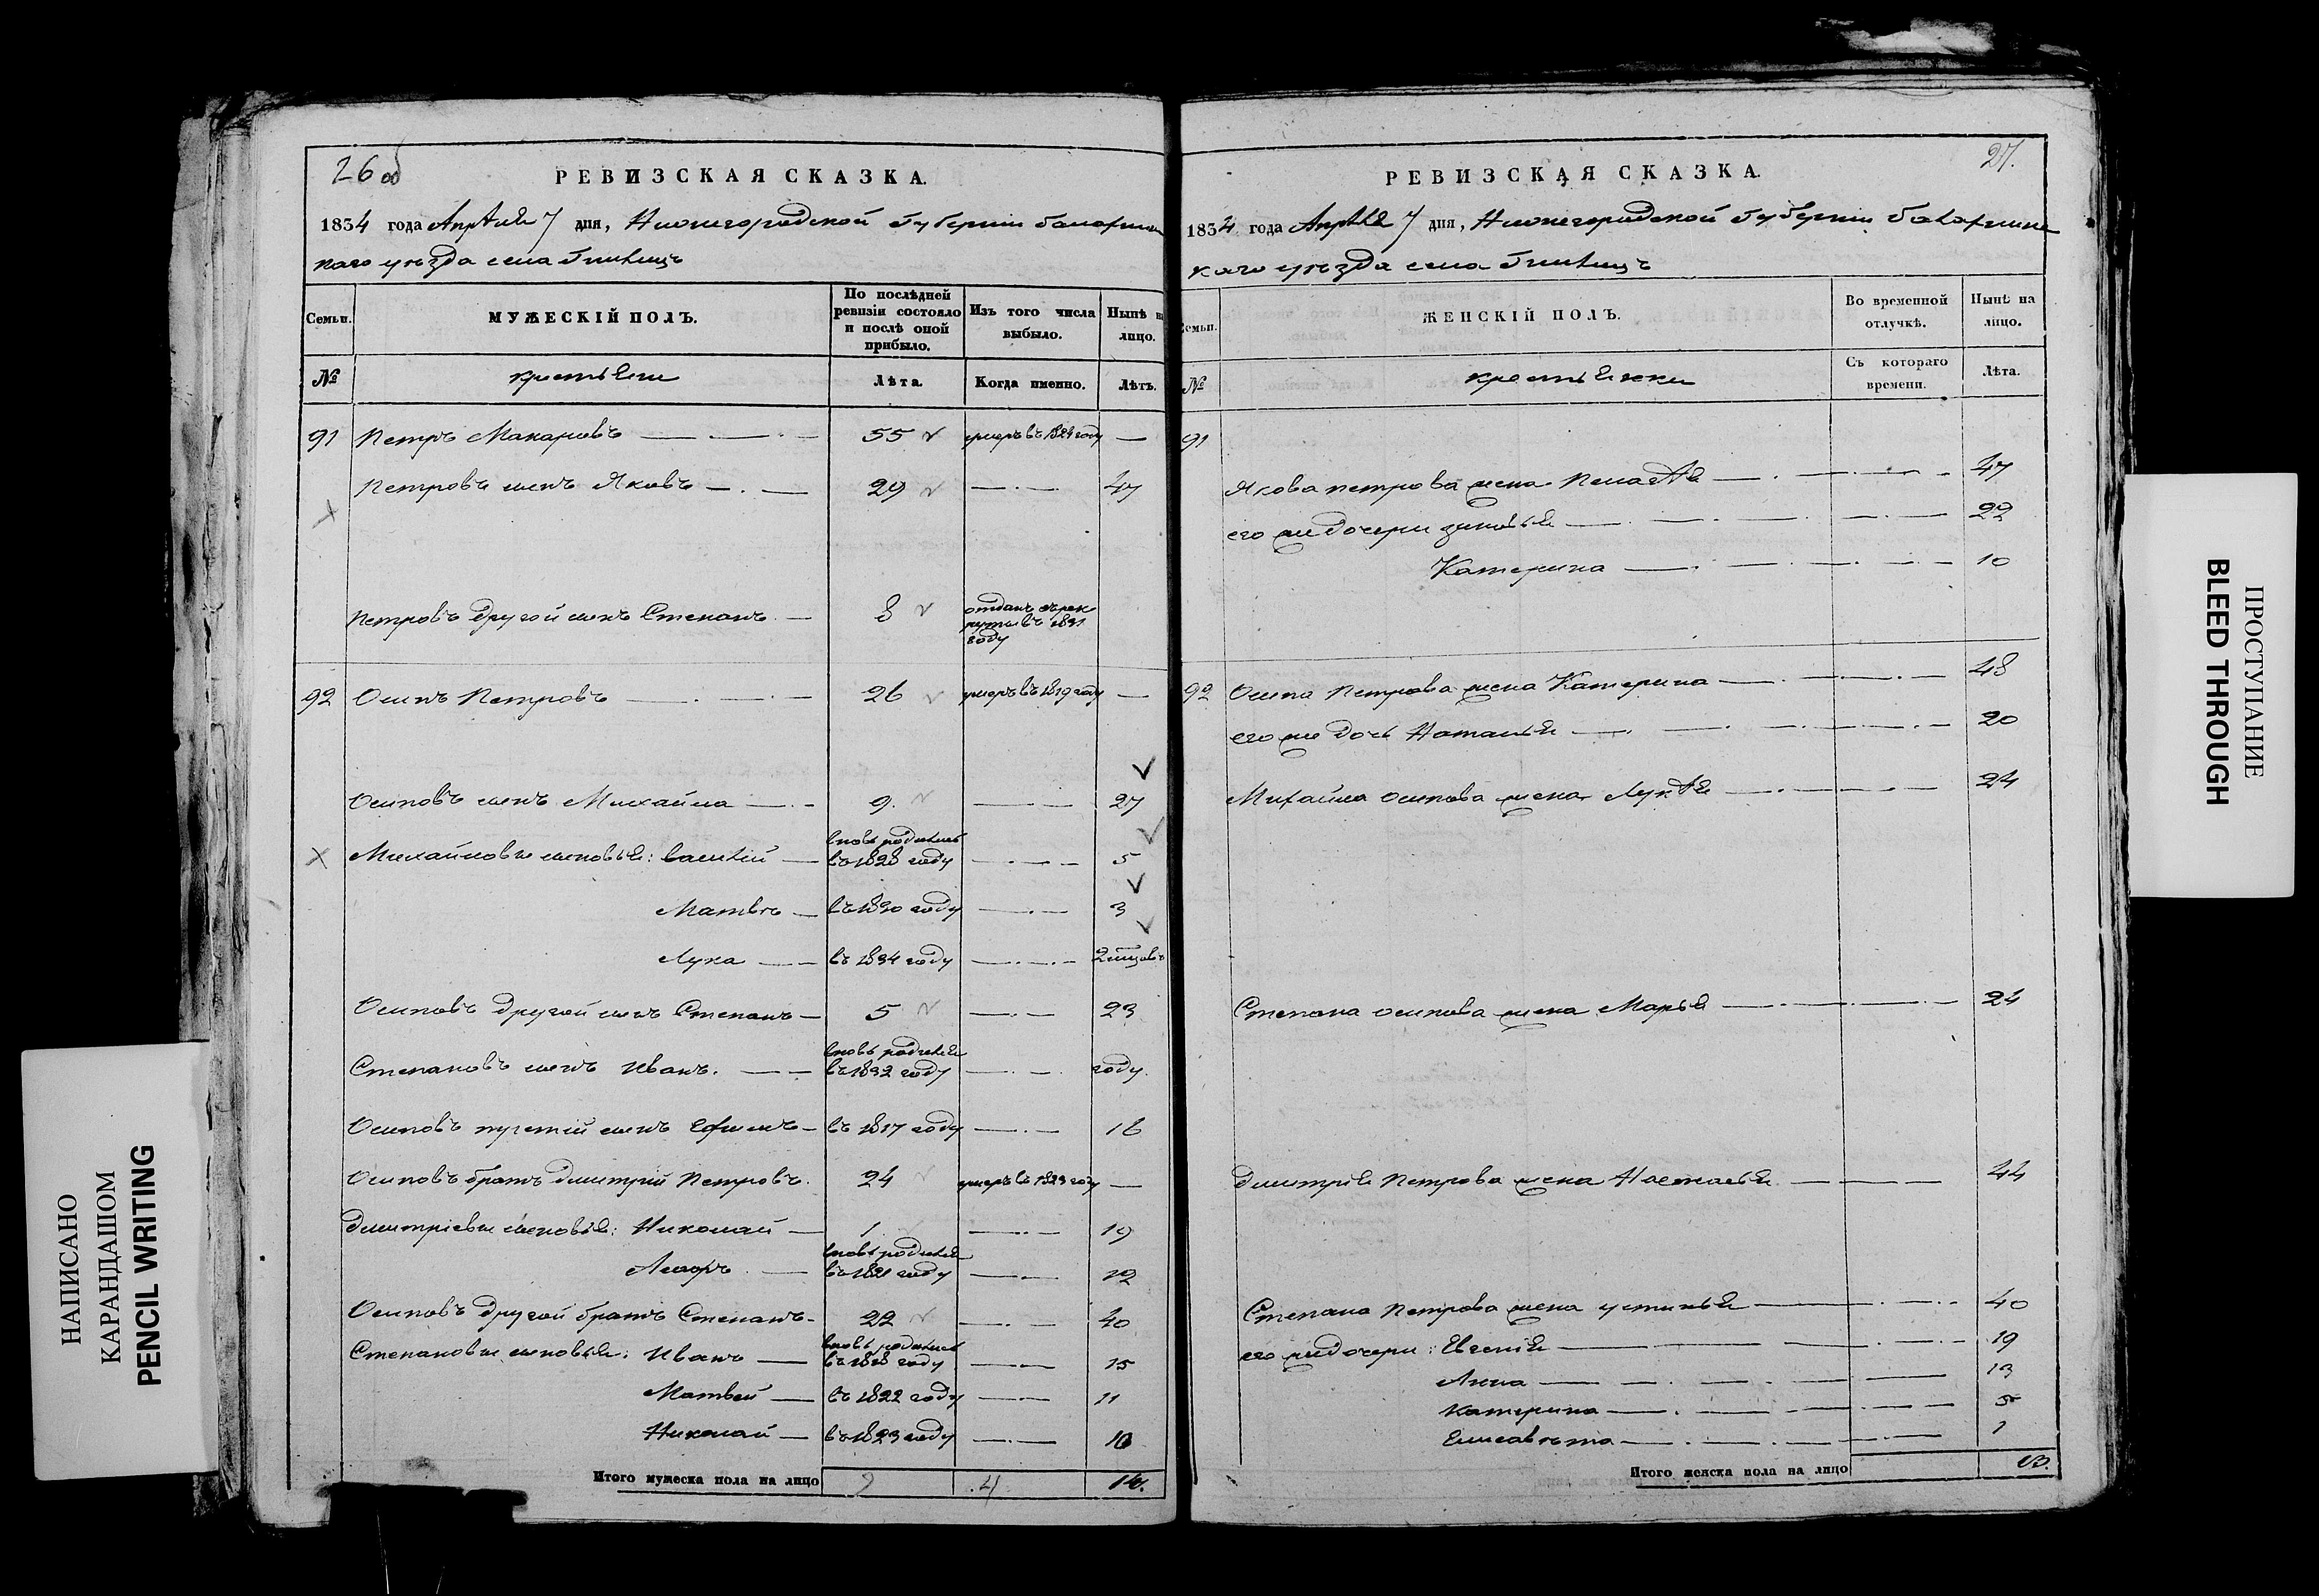 26 об
РЕВИЗСКАЯ СКАЗКА.
1834 года Апрѣля 7 дня, Нижегородской Губерніи Балахнин
скаго уѣзда села
Семьи. МУЖЕСКІЙ ПОЛЪ. По послѣдней ревизіи состояло и послѣ оной прибыло. Изъ того числа выбыло. Нынѣ на лицо.
№ крестьяне Лѣта. Когда именно. Лѣтъ.
91 Петръ Макаровъ 55 умеръ въ 1824 году —
Петровъ сынъ Яковъ 29 47
Петровъ другой сынъ Степанъ 8 отданъ въ рек
руты въ 1831
году
92 Осипъ Петровъ 26 умеръ въ 1819 году —
Осиповъ сынъ Михайла 9. 27
Михайловы сыновья: Василій вновь родились въ 1828 году 5
Матвѣ въ 1830 году 3
Лука въ 1834 году
Осиповъ другой сынъ Степанъ 5 23
Степановъ сынъ Иванъ. вновь родился въ 1832 году году.
Осиповъ третій сынъ Ефимъ въ 1817 году 16
Осиповъ братъ Дмитрій Петровъ. 24 умеръ въ 1823 году —
Дмитріевы сыновья: Николай 1. 19
вновь родился въ 1821 году 12
Осиповъ другой братъ Степанъ 22 40
Степановы сыновья: Иванъ вновь родились въ 1818 году 15
Матвей въ 1822 году 11
Николай въ 1823 году 10
Итого мужеска пола на лицо 9 4 14.
27.
РЕВИЗСКАЯ СКАЗКА.
1834 года Апрѣля 7 дня, Нижегородской Губерніи Балахнинс
каго уѣзда села
Семьи. ЖЕНСКІЙ ПОЛЪ. Во временной отлучкѣ. Нынѣ на лицо.
№ крестьянки Съ котораго времени. Лѣта.
91
Якова Петрова жена Пелагѣя 47
его же дочери зиновья 22
Катерина 10
92 Осипа Петрова жена Катерина 48
его же дочь Наталья 20
Михайла осипова жена Лукѣя 24
Степана осипова жена Марья 24
Дмитрія Петрова жена Настасья 44
Степана Петрова жена устинья 40
его же дочери: Евгенія 19
Анна 13
Катерина 5
Елисавѣта 1
Итого женска пола на лицо 13.
НАПИСАНО
КАРАНДАШОМ
PENCIL WRITING
ПРОСТУПАНИЕ
BLEED THROUGH